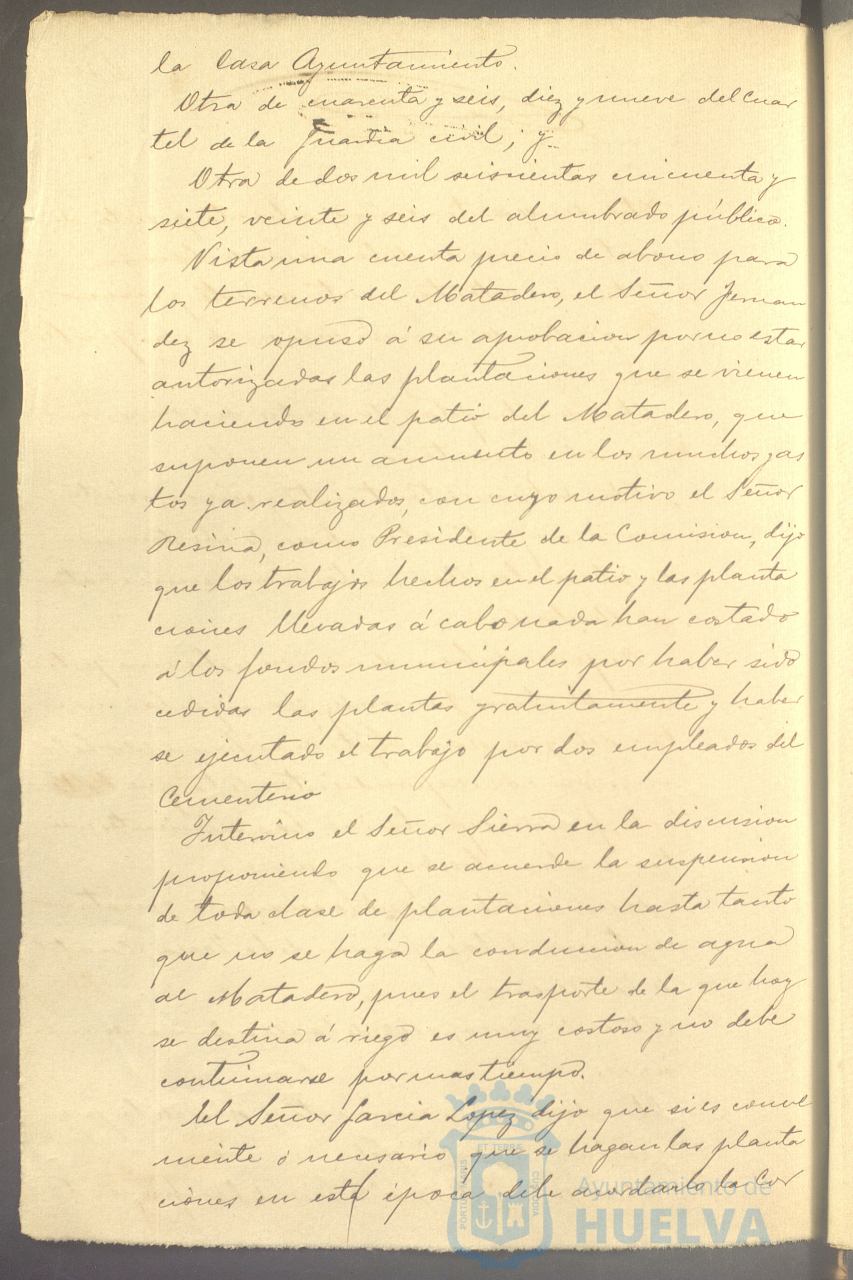 la Casa Ayuntamiento.
Otra de cuarenta y seis, diez y nueve del Cuar
tel de la Guardia civil; y
Otra de dos mil seiscientas cincuenta y
siete, veinte y seis del alumbrado público.
Vista una cuenta precio de abono para
los terrenos del Matadero, el Señor Fernan
dez se opuso á su aprobacion por no estar
autorizadas las plantaciones que se vienen
haciendo en el patio del Matadero, que
suponen un aumento en los muchos gas
tos ya realizados, con cuyo motivo el Señor
Resina, como Presidente de la Comision, dijo
que los trabajos hechos en el patio y las planta
ciones llevadas á cabo nada han costado
á los fondos municipales por haber sido
cedidas las plantas gratuitamente y haber
se ejecutado el trabajo por dos empleados del
Cementerio
Intervino el Señor Sierra en la discusion
proponiendo que se acuerde la suspension
de toda clase de plantaciones hasta tanto
que no se haga la conduccion de agua
al Matadero, pues el trasporte de la que hoy
se destina á riego es muy costoso y no debe
continuarse por mas tiempo.
El Señor Garcia Lopez dijo que si es conve
niente ó necesario que se hagan las planta
ciones en esta época debe acordarlo la Cor
ET TERRE
PORTUS MARIS
CUSTODIA
Ayuntamiento de
HUELVA